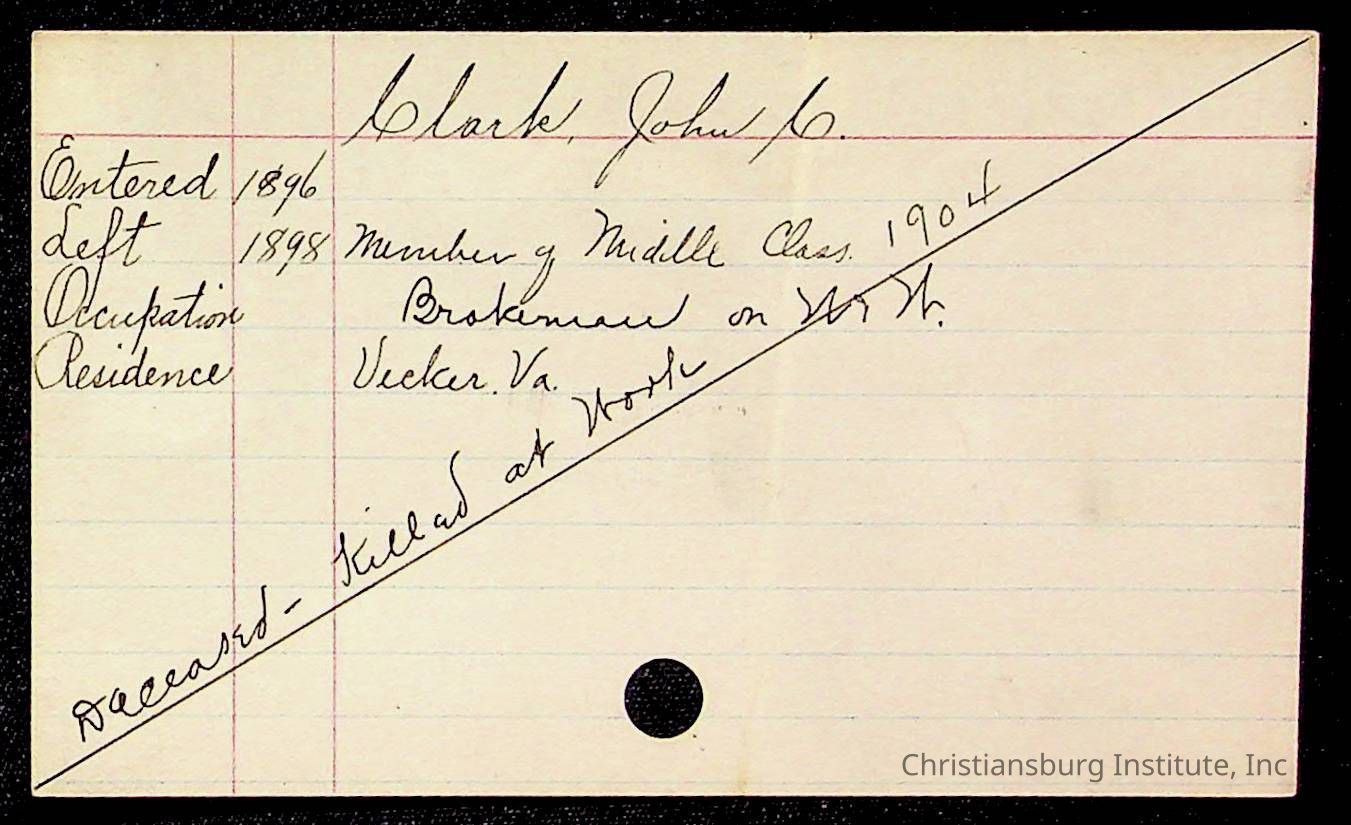 Clark, John C.
Entered 1896
Left 1898 Member of Middle Class.
Occupation Brakeman on N & W.
Residence Vicker, Va.
Deceased - Killed at Work 1904
Christiansburg Institute, Inc